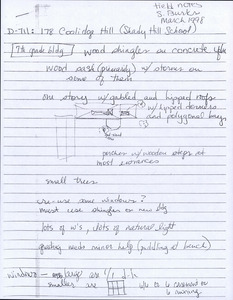 field notes
S. Burks
March 1998
D-711: 178 Coolidge Hill (Shady Hill School)
7th grade bldg. wood shingles on concrete
wood sash (primarily) w/ storms on
some of them
one story w/ gabled and hipped roofs
w/ hipped dormers
and polygonal bays
porches w/ wooden steps at
most entrances
small trees
re-use some windows?
must use shingles on new bldg
lots of w's, lots of natural light
grading needs minor help (puddling @ bench)
windows - large are 6/1 d.h.
smaller are
6 casement or
6 awning